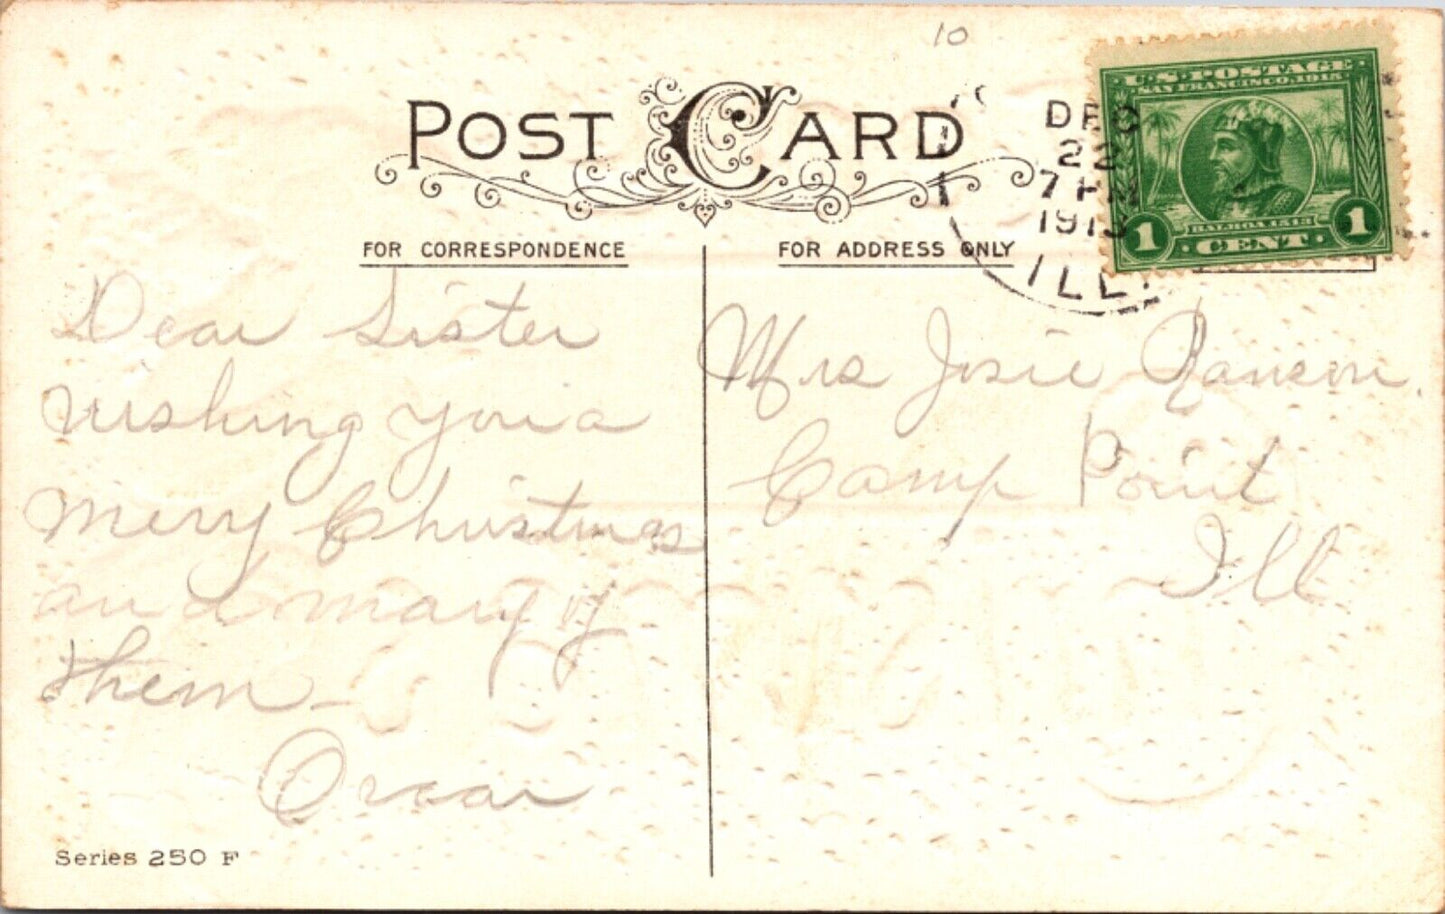 10
POST CARD
U.S. POSTAGE
SAN FRANCISCO 1915
BALBOA 1513
1 CENT 1
DEC
22
7 PM
1913
ILL.
FOR CORRESPONDENCE
FOR ADDRESS ONLY
Dear Sister
wishing you a
merry Christmas
and many of
them -
Oscar
Mrs Josie Ranson.
Camp Point
Ill
Series 250 F